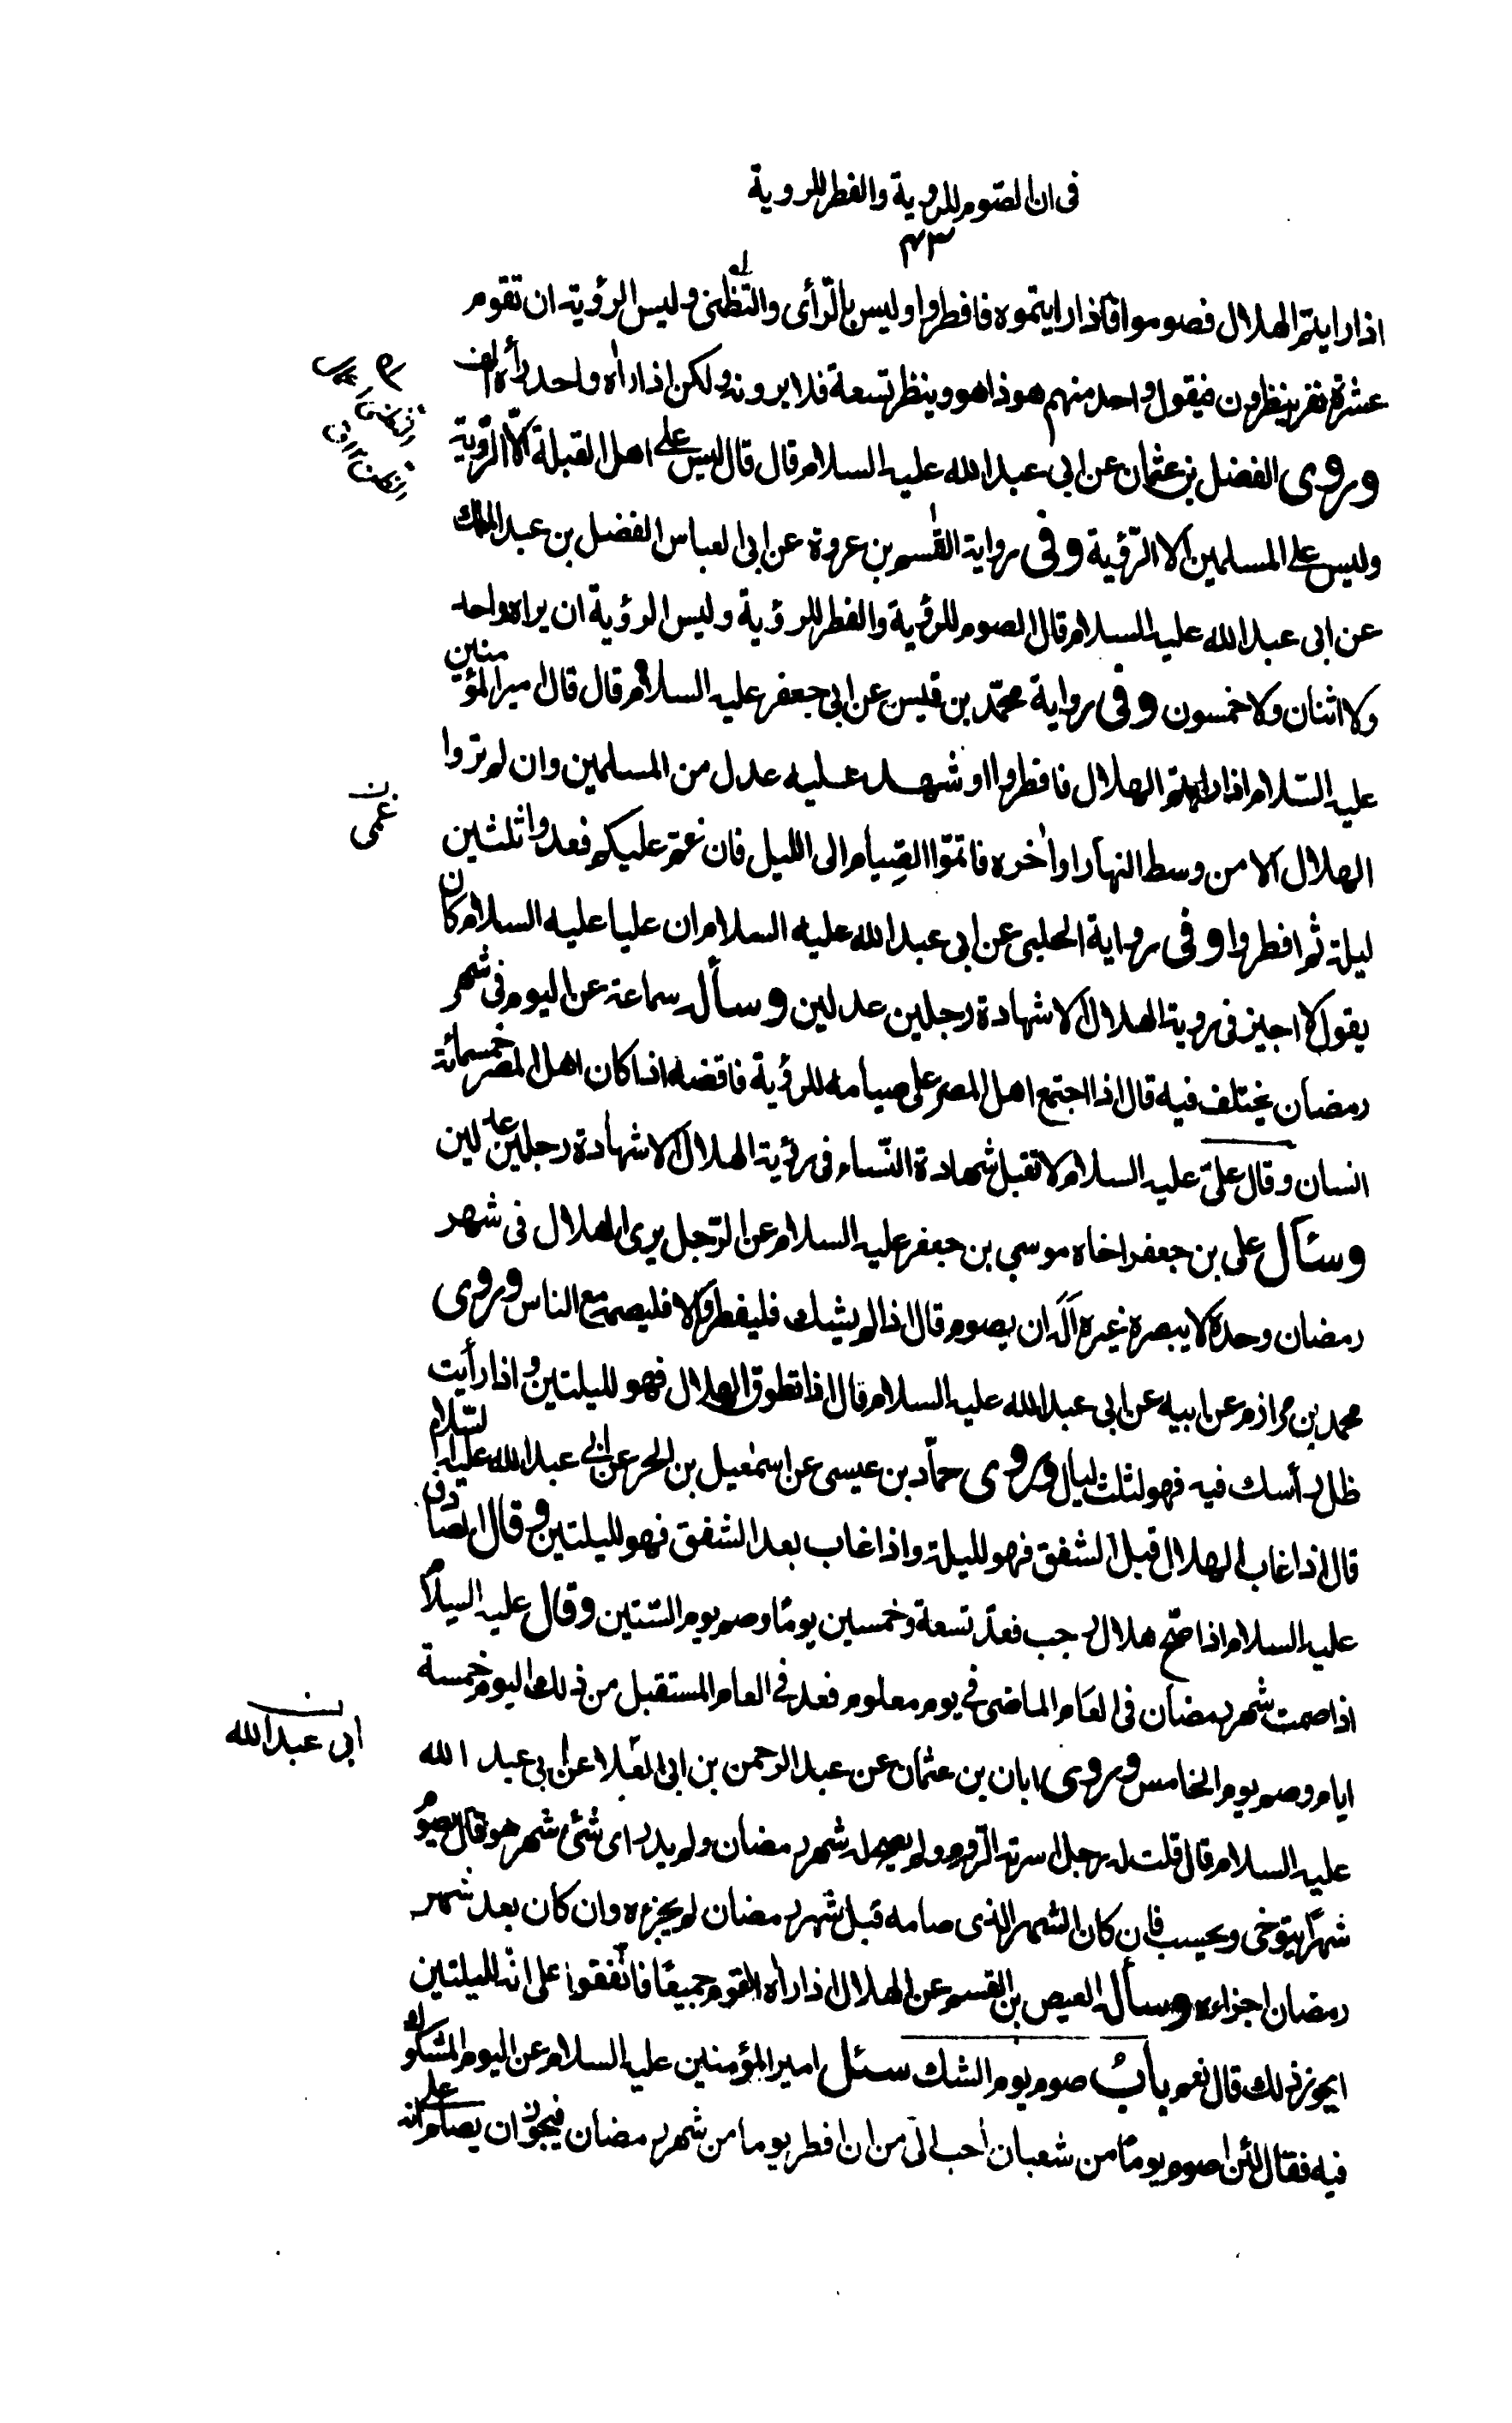 فى ان الصّوم للروية والفطر للروية
٤٣
اذا رايتم الهلال فصوموا فاذا رايتموه فافطروا وليس بالرّأى والتّظنى وليس الرؤية ان تقوم
عشرة نفر ينظرون فيقول واحد منهم هوذا هو وينظر تسعة فلا يرونه ولكن اذا راٰه واحد رأه الف
وروى الفضل بن عثمان عن ابى عبد الله عليه السلام قال قال ليس على اهل القبلة الّا الرّؤية
وليس على المسلمين الا الرّؤية وفى رواية القٰسم بن عروة عن ابى العباس الفضل بن عبد الملك
عن ابى عبد الله عليه السلام قال الصوم للرؤية والفطر للرؤية وليس الرؤية ان يراه واحد
ولا اثنان ولا خمسون وفى رواية محمّد بن قيس عن ابى جعفر عليه السلام قال قال امير المؤمنين
عليه السّلام اذا رايتم الهلال فافطروا او شهد عليه عدل من المسلمين وان لم تروا
الهلال الا من وسط النهار او اٰخره فاتمّوا الصّيام الى الليل فان غمّ عليكم فعدوا ثلثين
غمى
ليلة ثم افطروا وفى رواية الحلبى عن ابى عبد الله عليه السلام ان عليا عليه السلام كان
يقول لا اجيز فى روية الهلال الا شهادة رجلين عدلين وسأله سماعة عن اليوم فى شهر
رمضان يختلف فيه قال اذا اجتمع اهل المصر على صيامه للرؤية فاقضه اذا كان اهل المصر خمسمائة
انسان وقال علىّ عليه السلام لا تقبل شهادة النّساء فى رؤية الهلال الا شهادة رجلين عدلين
وسئال على بن جعفر اخاه موسى بن جعفر عليه السلام عن الرّجل يرى الهلال فى شهر
رمضان وحده لا يبصره غيره أله ان يصوم قال اذا لم يشك فليفطر والا فليصمه مع الناس وروى
محمد بن مرازم عن ابيه عن ابى عبد الله عليه السلام قال اذا تطوق الهلال فهو لليلتين و اذا رأيت
ظل رأسك فيه فهو لثلث ليال وروى حمّاد بن عيسى عن اسمٰعيل بن الحر عن ابى عبد الله عليه السّلام
قال اذا غاب الهلال قبل الشفق فهو لليلة واذا غاب بعد الشفق فهو لليلتين وقال الصادق
عليه السلام اذا صحّ هلال رجب فعدّ تسعة وخمسين يومًا وصم يوم السّتين وقال عليه السلام
اذا صمت شهر رمضان فى العام الماضى فى يوم معلوم فعد فى العام المستقبل من ذلك اليوم خمسة
ايام وصم يوم الخامس وروى ابان بن عثمان عن عبد الرحمن بن ابى العلا عن ابى عبد الله
ابى عبد الله
عليه السلام قال قلت له رجل اسرته الرّوم ولم يصم له شهر رمضان ولم يدر اى شئ شهر هو قال يصوم
شهرًا يتوخى ويحسب فان كان الشهر الذى صامه قبل شهر رمضان لم يجزه وان كان بعد شهر
رمضان اجزاءه وسأله العيص بن القسم عن الهلال اذا راٰه القوم جميعًا فاتّفقوا على انه لليلتين
ايجوز ذلك قال نعم بابُ صوم يوم الشك سئل امير المؤمنين عليه السلام عن اليوم المشكوك
فيه فقال لئن اصوم يومًا من شعبان احب الىّ من ان افطر يوما من شهر رمضان فيجوز ان يصام على انه